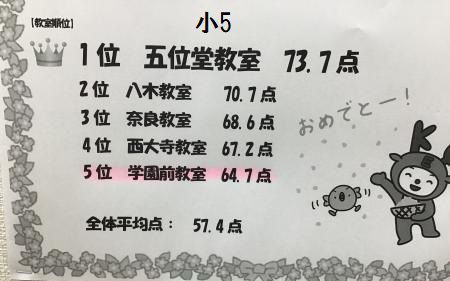 小5
【教室順位】
1位 五位堂教室 73.7点
2位 八木教室 70.7点
3位 奈良教室 68.6点
4位 西大寺教室 67.2点
5位 学園前教室 64.7点
おめでとー！
全体平均点： 57.4点